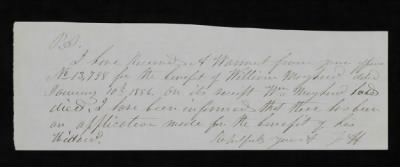 P.S.
I have received a Warrant from your office
No 13,798 for the benefit of William Mayhew dated
January 10th 1856. On its receipt Wm Mayhew had
died. I have been informed that there has been
an application made for the benefit of his
Widow.
Respectfully yours &c